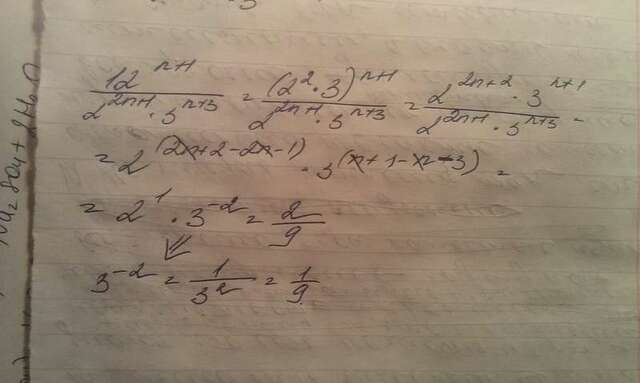 12^(n+1) / (2^(2n+1) · 3^(n+3)) = (2² · 3)^(n+1) / (2^(2n+1) · 3^(n+3)) = 2^(2n+2) · 3^(n+1) / (2^(2n+1) · 3^(n+3)) =
= 2^(2n+2-2n-1) · 3^(n+1-n-3) =
= 2¹ · 3⁻² = 2/9
3⁻² = 1/3² = 1/9